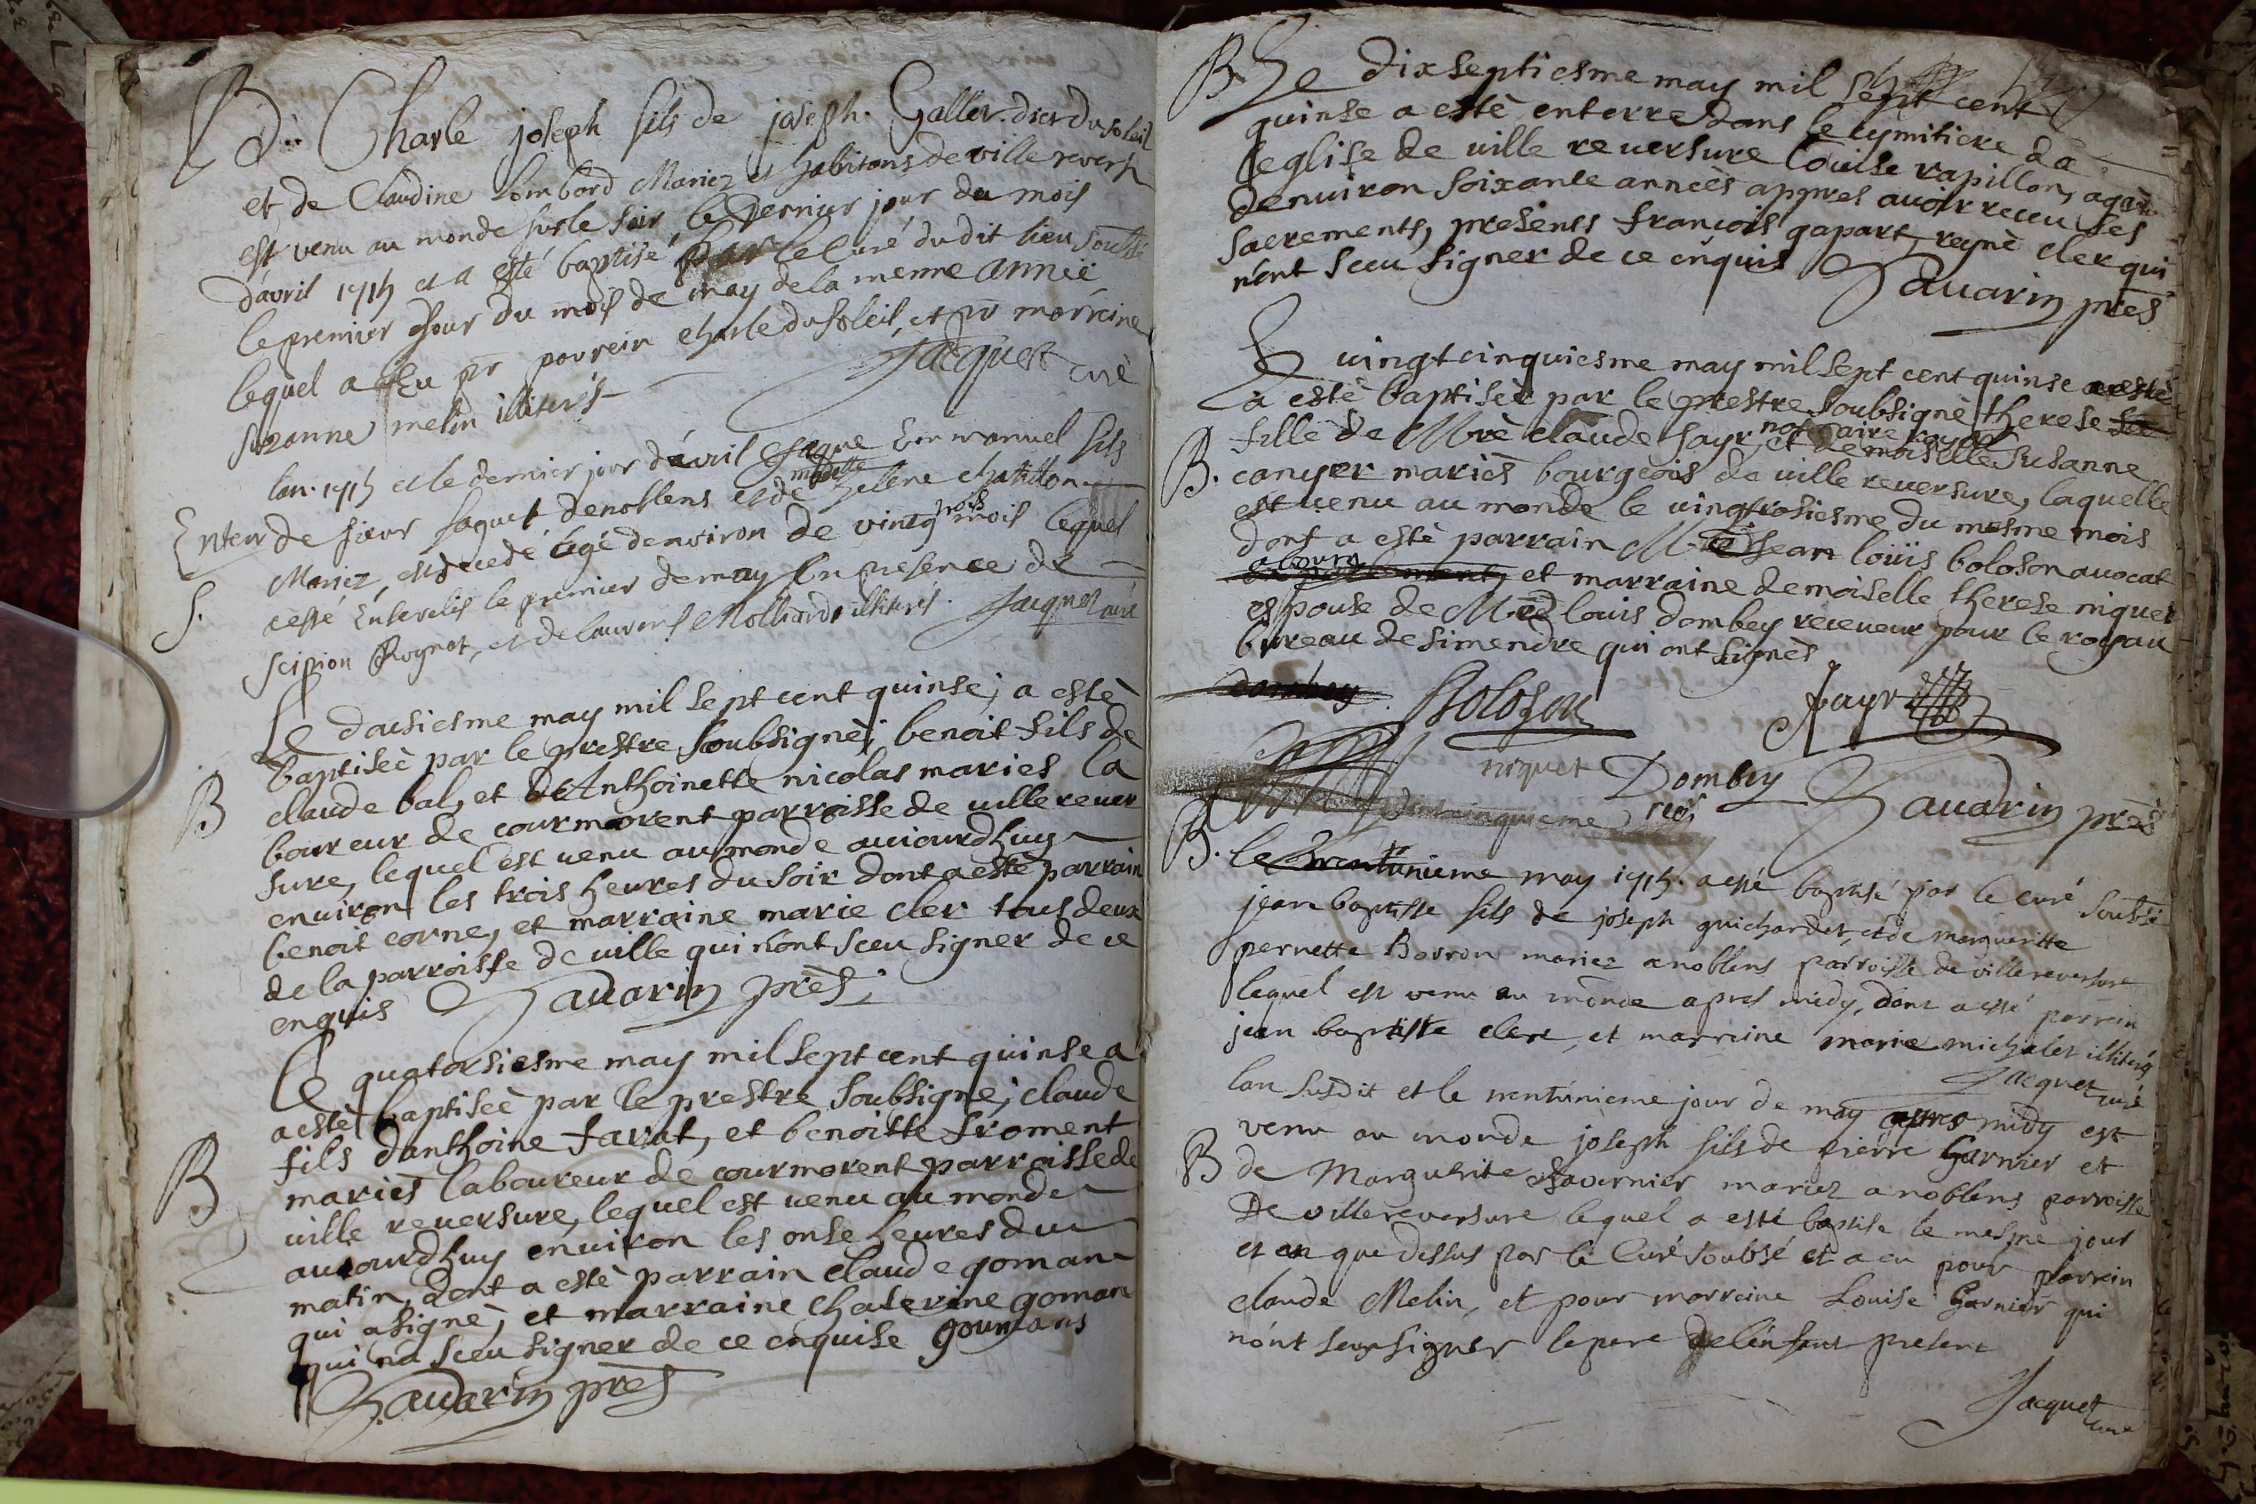 B du Charle joseph fils de joseph Galler dict du soleil
et de Claudine Lombard Mariez et habitans de ville revers
est venu au monde sur le soir le dernier jour du mois
d'avril 1715 et a esté baptisé par le Curé du dit lieu soubsé
le premier jour du mois de may de la meme année
lequel a Eu pr parrein charle du soleil, et pr marreine
suzanne melin illiterés
Jacquet curé
lan 1715 et le dernier jour d'avril jaque Emmanuel fils
Enterr de sieur jaquet denoblens et de helene chatillon
Mariez, est decedé agé denviron de vingt mois lequel
S. a esté Enseveli le premier de may En presence de
scipion Rognat, et de laurens Molliard illiterés. Jacquet curé
Le dousiesme may mil sept cent quinse, a esté
baptiseè par le prestre soubsignè, benoit fils de
B claude bal, et d'Anthoinette nicolas mariès la
boureur de courmorent parroisse de ville rever
sure, lequel est venu au monde auiourdhuy
environ les trois heures du soir dont a estè parrain
benoit corne, et marraine marie cler tous deux
de la parroisse de ville qui n'ont sceu signer de ce
enquis Sauarin pres
Le quatorsiesme may mil sept cent quinse a
a estè baptiseè par le prestre soubsignè, claude
fils danthoine farat, et benoitte froment
B mariès laboureur de courmorent parroisse de
ville reversure, lequel est venu au monde
auiourdhuy environ les onse heures du
matin, dont a estè parrain claude goman
qui a signè, et marraine chaterine goman
qui na sceu signer de ce enquise goumans
Sauarin pres
B. Le dixseptiesme may mil sept cent
quinse a estè enterre dans le cymitiere de
leglise de ville reversure Louise rapillon, ageè
denviron soixante anneès appres auoir receu ses
sacrements, presents francois gapart, reynè cler qui
n'ont sceu signer de ce enquis Sauarin pres
Le vingtcinquiesme may mil sept cent quinse a estè
a estè baptiseè par le prestre soubsignè therese
fille de Mre claude jayr notaire royal et demoiselle Susanne
B. canyer mariès bourgeois de ville reversure, laquelle
est venu au monde le vingtrosiesme du mesme mois
dont a estè parrain Mre Jean loüis boloson auocat
a bourg et marraine demoiselle therese niquet
espouse de Mre louis dombey receveur pour le roy au
bureau de simendre qui ont signès
dombey Boloson Jayr
niquet Dombey Sauarin pres
B. le trentunieme may 1715. a esté baptisé par le curé soubsé
jean baptiste fils de joseph guichardet, et de margueritte
pernette Borron mariez a noblens parroisse de villereversure
lequel est venu au monde apres midy, dont a esté parrein
jean baptiste clere, et marreine marie michalet illiterés
Jacquet curé
lan susdit et le trentunieme jour de may apres midy est
venu au monde joseph fils de pierre Garnier et
B de Marguerite Tavernier mariez a noblens parroisse
De villereversure lequel a esté baptise le mesme jour
et an que dessus par le Curé soubsé et a eu pour parrein
claude Melin, et pour marreine Louise Garnier qui
n'ont sceu signer le pere de l'enfant present
Jacquet curé